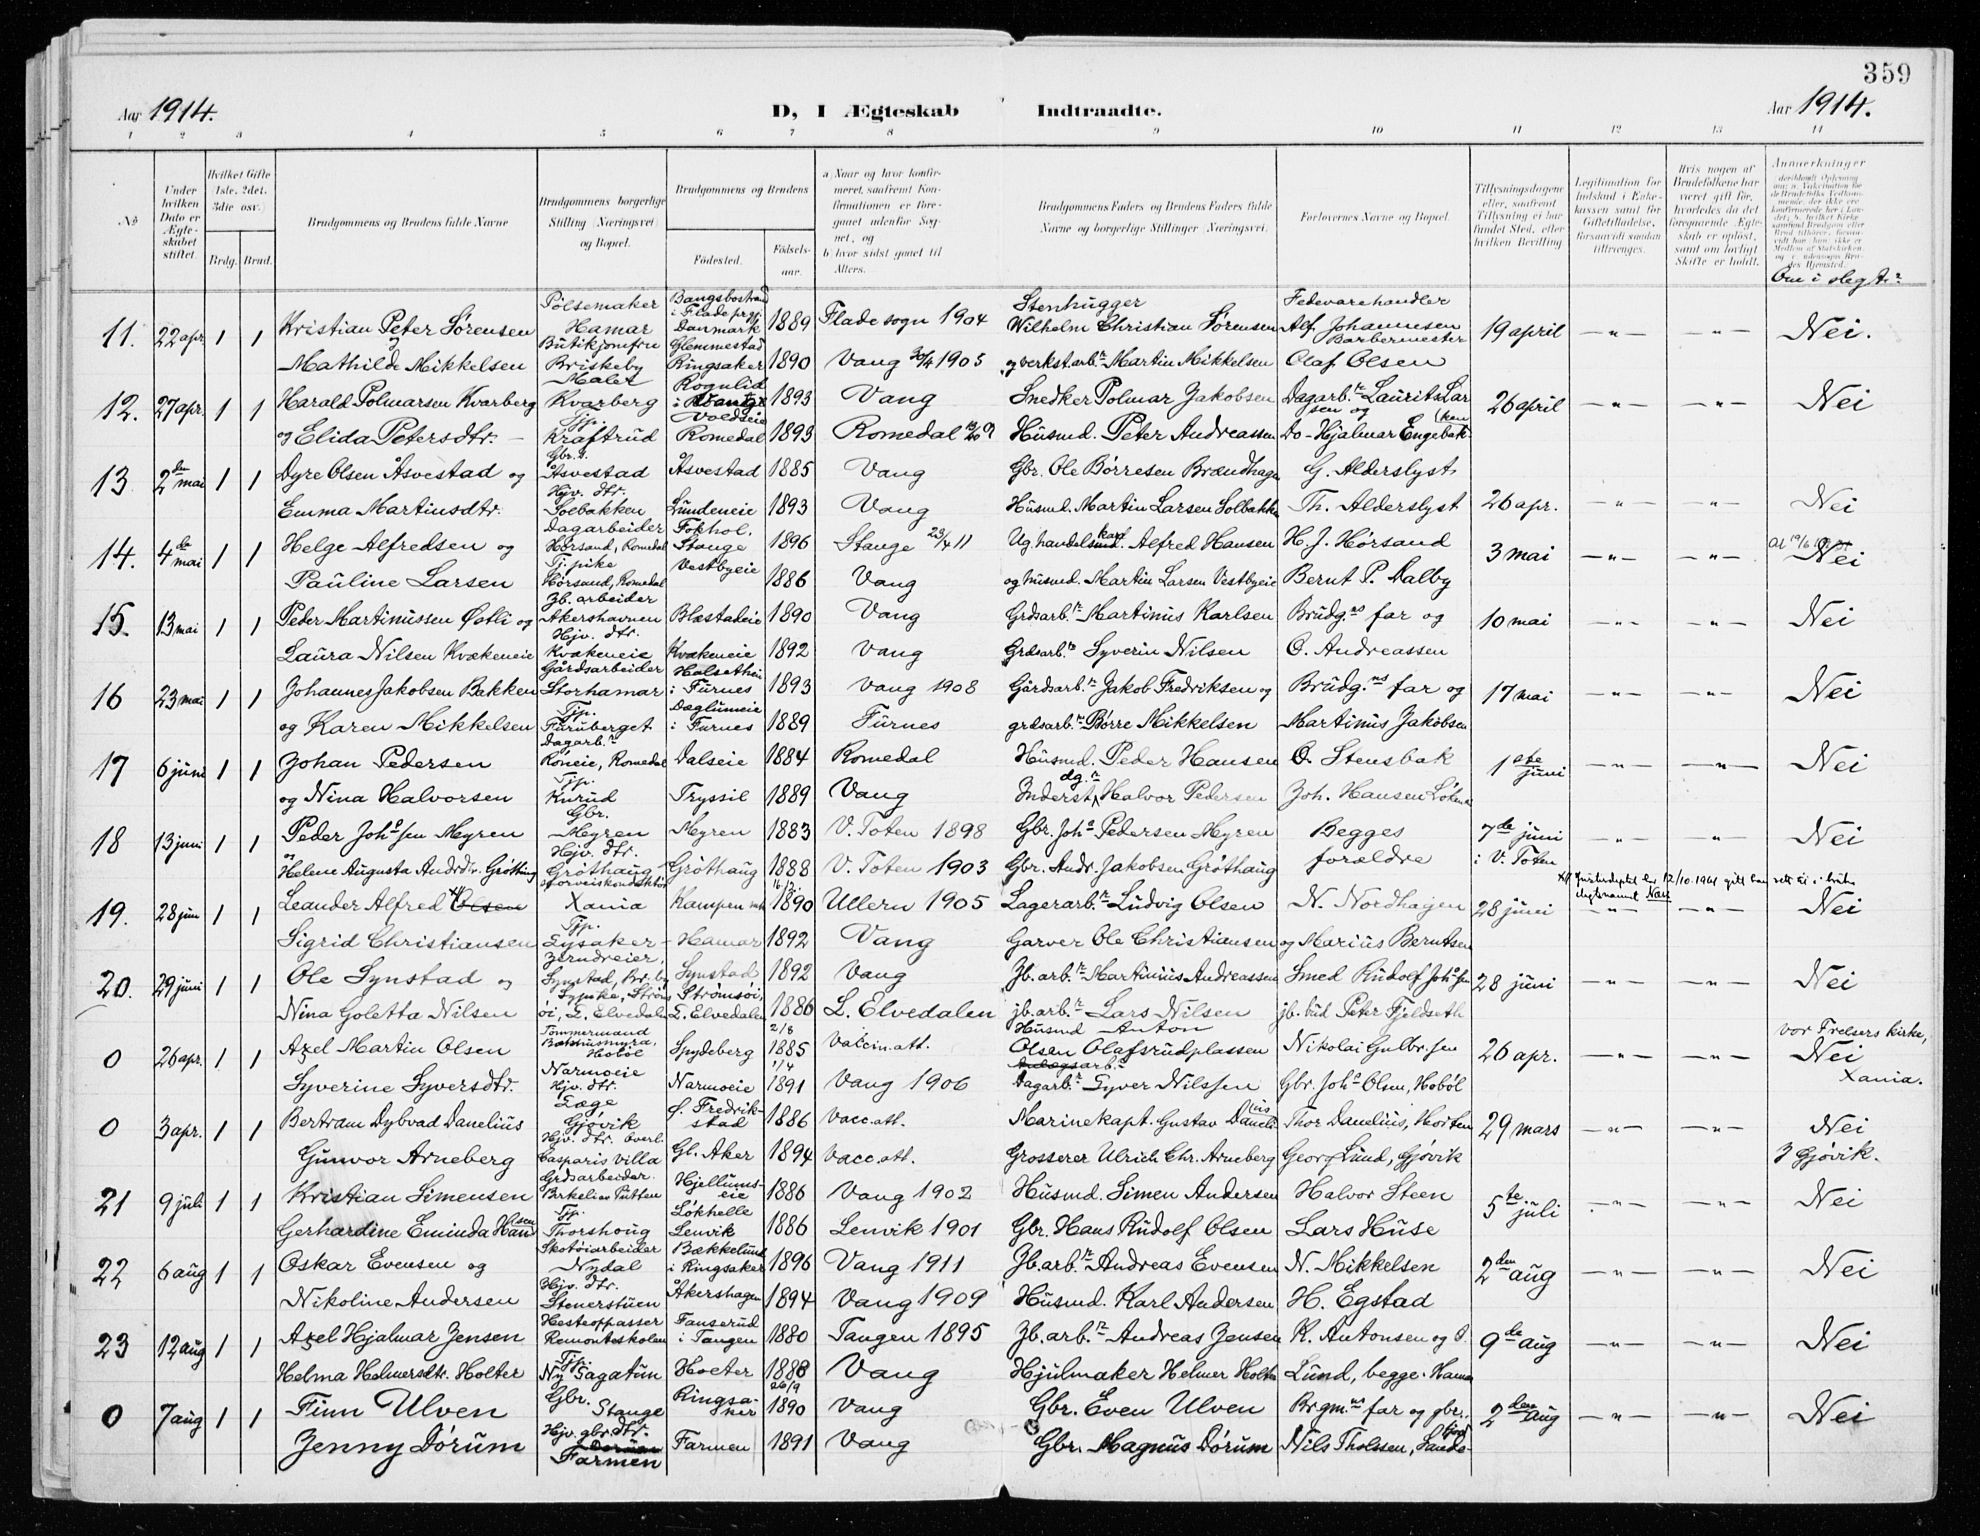 359
Aar 1914. D, I Ægteskab Indtraadte. Aar 1914.
1 2 3 4 5 6 7 8 9 10 11 12 13 14
No
Under hvilken Dato er Ægteskabet stiftet.
Hvilket Gifte (1ste, 2det, 3die osv.)
Brdg. Brud.
Brudgommens og Brudens fulde Navne
Brudgommens borgerlige Stilling (Næringsvei) og Bopæl.
Brudgommens og Brudens
Fødested. Fødselsaar.
a Naar og hvor konfirmeret, saafremt Konfirmationen er foregaaet udenfor Sognet, og
b hvor sidst gaaet til Alters.
Brudgommens Faders og Brudens Faders fulde Navne og borgerlige Stillinger (Næringsvei).
Forlovernes Navne og Bopæl.
Tillysningsdagene eller, saafremt Tillysning ei har fundet Sted, efter hvilken Bevilling
Legitimation for Indskud i Enkekassen samt for Giftetilladelse, forsaavidt saadan tiltrænges.
Hvis nogen af Brudefolkene har været gift før, hvorledes da det foregaaende Ægteskab er opløst, samt om lovligt Skifte er holdt.
Anmerkninger
Om i slegt?
11. 22 apr. 1 1 Kristian Peter Sørensen Pølsemaker Hamar Bangsbostrand i Flade prgj. Danmark 1889 Flade sogn 1904 Stenhugger Wilhelm Christian Sørensen Fedevarehandler Alf. Johannesen 19 april -"- -"- Nei.
Mathilde Mikkelsen Butikjomfru Briskeby Glemmestad Ringsaker 1890 Vang 30/4 1905 og verkst.arb.r Martin Mikkelsen Barbermester Olaf Olsen
12. 27 apr. 1 1 Harald Polmarsen Kvarberg Maler Kvarberg Rognlid i Vang 1893 Vang Snedker Polmar Jakobsen Dagarb.r Laurits Larsen og 26 april -"- -"- Nei
og Elida Petersdtr. Tjp. Kraftrud Voldeie Romedal 1893 Romedal Husmd. Peter Andreassen Do - Hjalmar Engebakken
13 2de mai 1 1 Dyre Olsen Åsvestad og Gbr. s. Åsvestad Åsvestad 1885 Vang Gbr. Ole Børresen Brændhagen G. Alderslyst
Emma Martinsdtr. Hjv. dtr. Solbakken Lundeneie 1893 Vang Husmd. Martin Larsen Solbakken Th. Alderslyst 26 apr. -"- -"- Nei
14. 4de mai 1 1 Helge Alfredsen og Dagarbeider Hørsand, Romedal Fokhol. Stange 1896 Stange 23/4 11 Ug. handelskarl Alfred Hansen H. J. Hørsand 3 mai -"- -"- Nei
Pauline Larsen Tj. pike Hørsand, Romedal Vestbyeie 1886 Vang og husmd. Martin Larsen Vestbyeie Bernt P. Dalby
15. 13 mai 1 1 Peder Martinussen Østli og Jb. arbeider Akershavnen Blæstadeie 1890 Vang Grdsarb.r Martinus Karlsen Brudg.ns far og 10 mai -"- -"- Nei
Laura Nilsen Kvækeneie Hjv. dtr. Kvækeneie Kvækeneie 1892 Vang Grdsarb.r Syverin Nilsen O. Andreassen
16 23 mai 1 1 Johannes Jakobsen Bakken Gårdsarbeider Storhamar i Furnes 1893 Vang 1908 Gårdsarb.r Jakob Fredriksen og Brudg.ns far og 17 mai -"- -"- Nei
og Karen Mikkelsen Tjp. Furuberget Daglumeie i Furnes 1889 Furnes grdsarb.r Børre Mikkelsen Martinus Jakobsen
17 6 juni 1 1 Johan Pedersen Dagarb.r Røneie, Romedal Dalseie 1884 Romedal Husmd. Peder Hansen O. Stensbak 1ste juni -"- -"- Nei
og Nina Halvorsen Tjp. Knrud Tryssil 1889 Vang Inderst, dg.r Halvor Pedersen Joh. Hansen Løken
18 13 juni 1 1 Peder Johs.sen Myren Gbr. Myren Myren 1883 V. Toten 1898 Gbr. Johs Pedersen Myren Begges 7de juni -"- " Nei
og Helene Augusta Andrdtr. Grøthaug Hjv. dtr. Grøthaug Grøthaug 1888 V. Toten 1903 Gbr. Andr. Jakobsen Grøthaug forældre i V. Toten
19. 28 juni 1 1 Leander Alfred x) Olsen Sporveiskonduktør Xania Kampen 16/2 1890 Ullern 1905 Lagerarb.r Ludvig Olsen N. Nordhagen 28 juni -"- -"- Nei
12/10.1961
Sigrid Christiansen Tjp. Lysaker Hamar 1892 Vang Garver Ole Christiansen og Marius Berntsen
20. 29 juni 1 1 Ole Synstad og Synstad, Br.by Synstad 1892 Vang Jb. arb.r Martinius Andreassen Smed Rudolf Johs.sen 28 juni -"- -"- Nei
Nina Goletta Nilsen L. Elvedalen Strømsøi, L. Elvedalen 1886 L. Elvedalen jb. arb.r Lars Nilsen jb. bud Peter Fjeldseth
0 26 apr. 1 1 Axel Martin Olsen Tømmermand Hobøl Spydeberg 2/8 1885 Vaccin.att. Husmd Anton Olsen Olafsrudplassen Nikolai Gulbr.sen 26 apr. -"- -"- vor Frelsers kirke, Nei Xania.
Syverine Syversdtr. Narmoeie Hjv. dtr. Narmoeie 1/4 1891 Vang 1906 Dagarb.r Syver Nilssen Gbr. Johs Olsen, Hobøl
0 3 apr. 1 1 Bertram Dybvad Danelius Læge Gjøvik f. Fredrikstad 1886 Vacc.att. Marinekapt. Gustav Danelius Thor Danelius, Horten 29 mars -"- -"- Nei
Gunvor Arneberg Hjv. dtr. Casparis villa Gl. Aker 1894 Vacc.att. Grosserer Ulrich Chr. Arneberg Georg Lund, Gjøvik I Gjøvik.
21 9 juli 1 1 Kristian Simensen Grdsarbeider. Birkelien Putten Hjellumseie 1886 Vang 1902 Husmd. Simen Andersen Halvor Steen 5te juli -"- -"- Nei
Gerhardine Eminda Hansen Tjp. Thorshoug Løkhelle Lenvik 1886 Lenvik 1901 Gbr. Hans Rudolf Olsen Lars Huse
22 6 aug 1 1 Oskar Evensen og Skotøiarbeider Nydal Bækkelund i Ringsaker 1896 Vang 1911 Jb. arb.r Andreas Evensen N. Mikkelsen 2den aug -"- -"- Nei
Nikoline Andersen Hjv. dtr. Stenerstuen Åkershagen 1894 Vang 1909 Husmd. Karl Andersen H. Egstad
23 12 aug 1 1 Axel Hjalmar Jensen Hesteoppasser Remonteskolen Fanserud i Tangen 1880 Tangen 1895 Jb. arb.r Andreas Jensen K. Antonsen og O. 9de aug -"- -"- Nei
Helma Helmersdtr. Holter Tjp. Ny Sagatun Hoeter 1888 Vang Hjulmaker Helmer Holter Lund, begge Hamar
0 7 aug 1 1 Finn Ulven Gbr. Stange Ringsaker 26/9 1890 Vang Gbr. Even Ulven Brgm.ns far og gbr. 2den aug -"- -"- Nei
Jenny Dørum Hjv. gbr. dtr. Farmen Farmen 1891 Vang Gbr. Magnus Dørum Nils Tholssen,